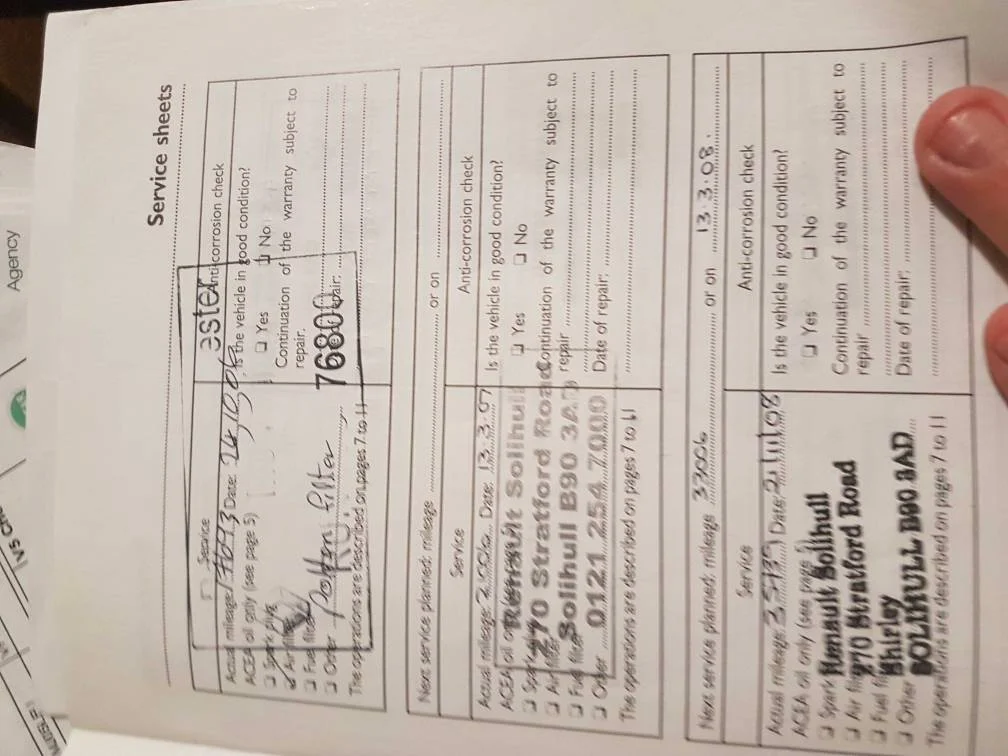 Agency
Service sheets
Service
Anti-corrosion check
Actual mileage: Date: 24/10/06
ACEA oil only (see page 5)
Is the vehicle in good condition?
❑ Spark plug
❑ Yes ❑ No
Air filter
Continuation of the warranty subject to
❑ Fuel filter
repair.
❑ Other pollen filter
76800
The operations are described on pages 7 to 11
Next service planned; mileage or on
Service
Anti-corrosion check
Actual mileage: Date: 13.3.07
Is the vehicle in good condition?
ACEA oil
❑ Yes ❑ No
Renault Solihull
270 Stratford Road
Solihull B90 3AD
0121 254 7000
Continuation of the warranty subject to
repair
Date of repair:
❑ Fuel filter
❑ Other
The operations are described on pages 7 to 11
Next service planned; mileage 33006 or on 13.3.08.
Service
Anti-corrosion check
Actual mileage: 35139 Date: 21/11/08
Is the vehicle in good condition?
ACEA oil only (see page 5)
❑ Yes ❑ No
❑ Spark Renault Solihull
❑ Air 270 Stratford Road
❑ Fuel Shirley
❑ Other SOLIHULL B90 3AD
Continuation of the warranty subject to
repair
Date of repair:
The operations are described on pages 7 to 11